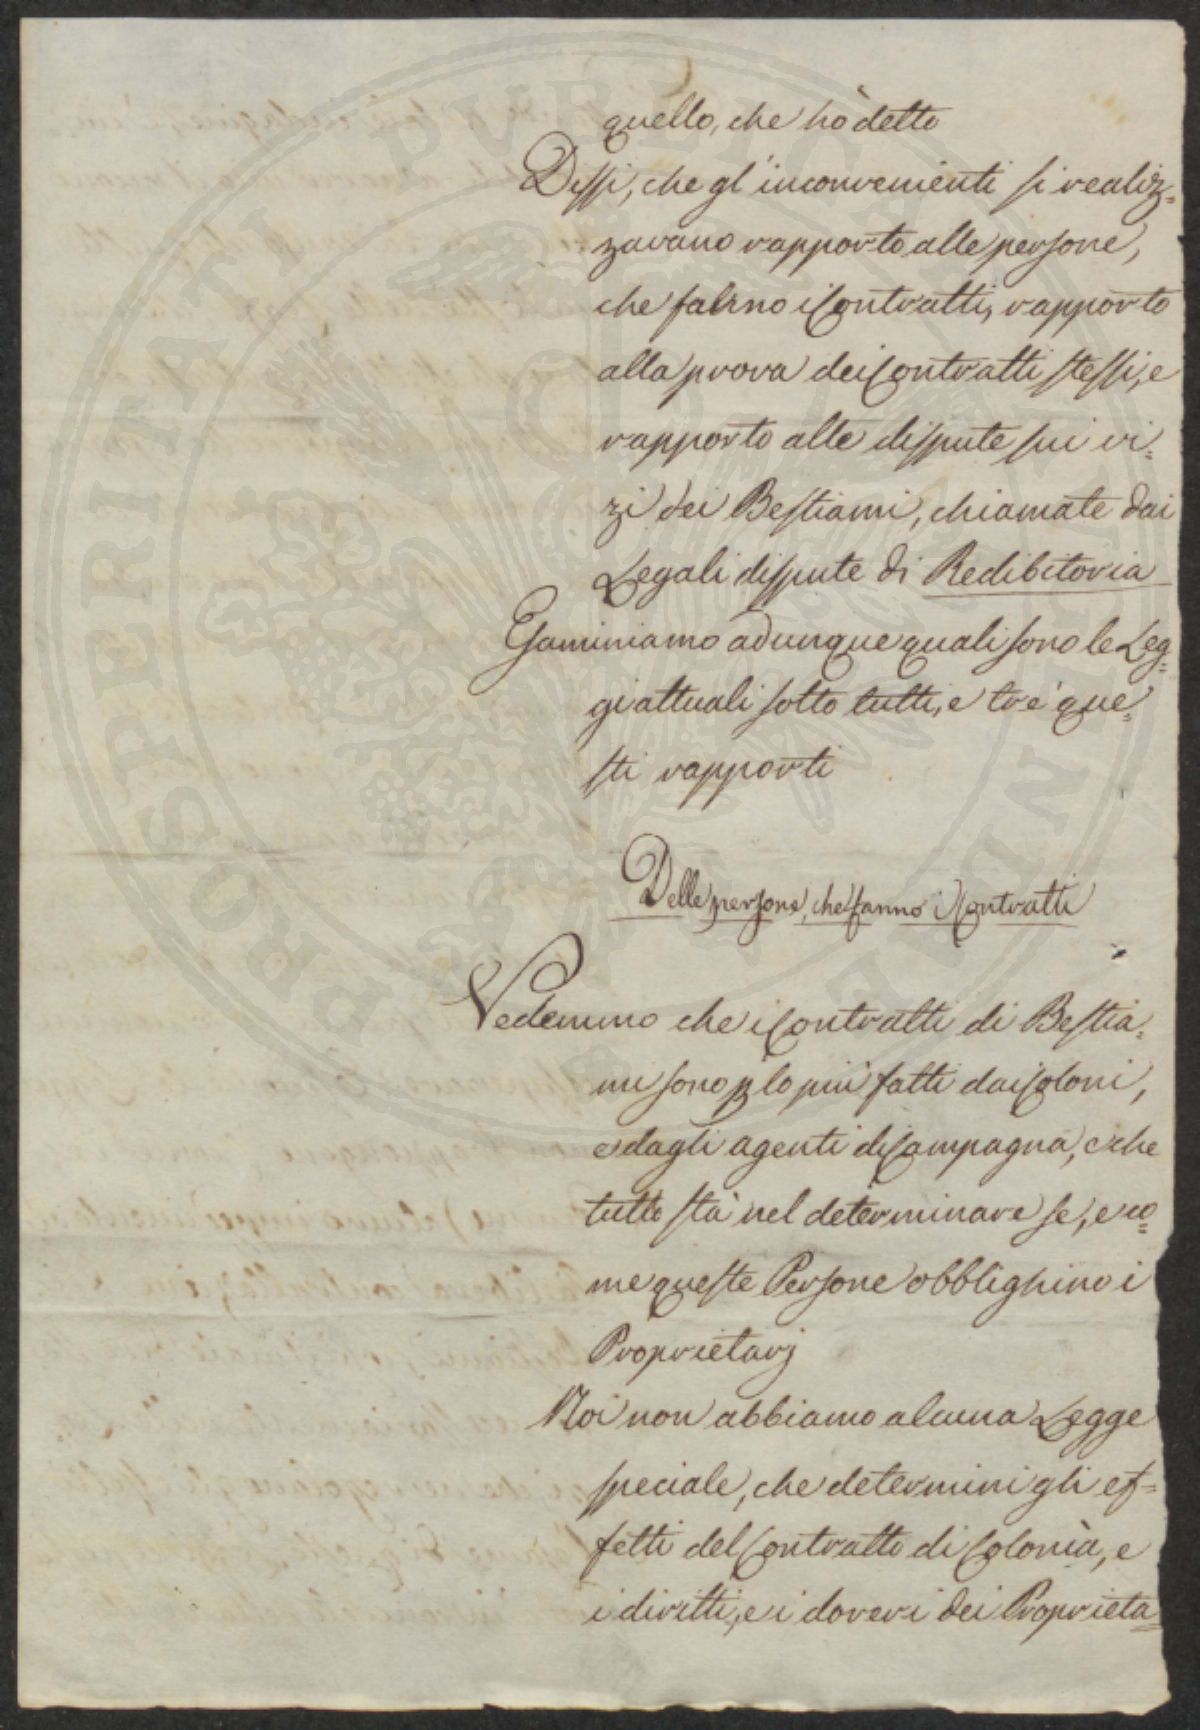 quello, che hò detto
Dissi, che gl'inconvenienti si realiz=
zavano rapporto alle persone,
che fanno i Contratti, rapporto
alla prova dei Contratti stessi, e
rapporto alle dispute sui vi=
zi dei Bestiami, chiamate dai
Legali dispute di Redibitoria
Esaminiamo adunque quali sono le Leg=
gi attuali sotto tutti, e tre que=
sti rapporti
Delle persone, che fanno i Contratti
Vedemmo che i Contratti di Bestia=
mi sono p lo più fatti dai Coloni,
e dagli agenti di Campagna, e che
tutto stà nel determinare se, e co=
me queste Persone obblighino i
Proprietarj
Noi non abbiamo alcuna Legge
speciale, che determini gli ef=
fetti del Contratto di Colonìa, e
i diritti, e i doveri dei Proprieta=
PROSPERITATI PUBLICAE AUGENDAE